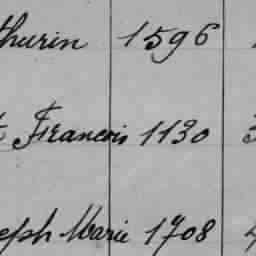 thurin 1596
t Francois 1130 3
seph Marie 1708 4